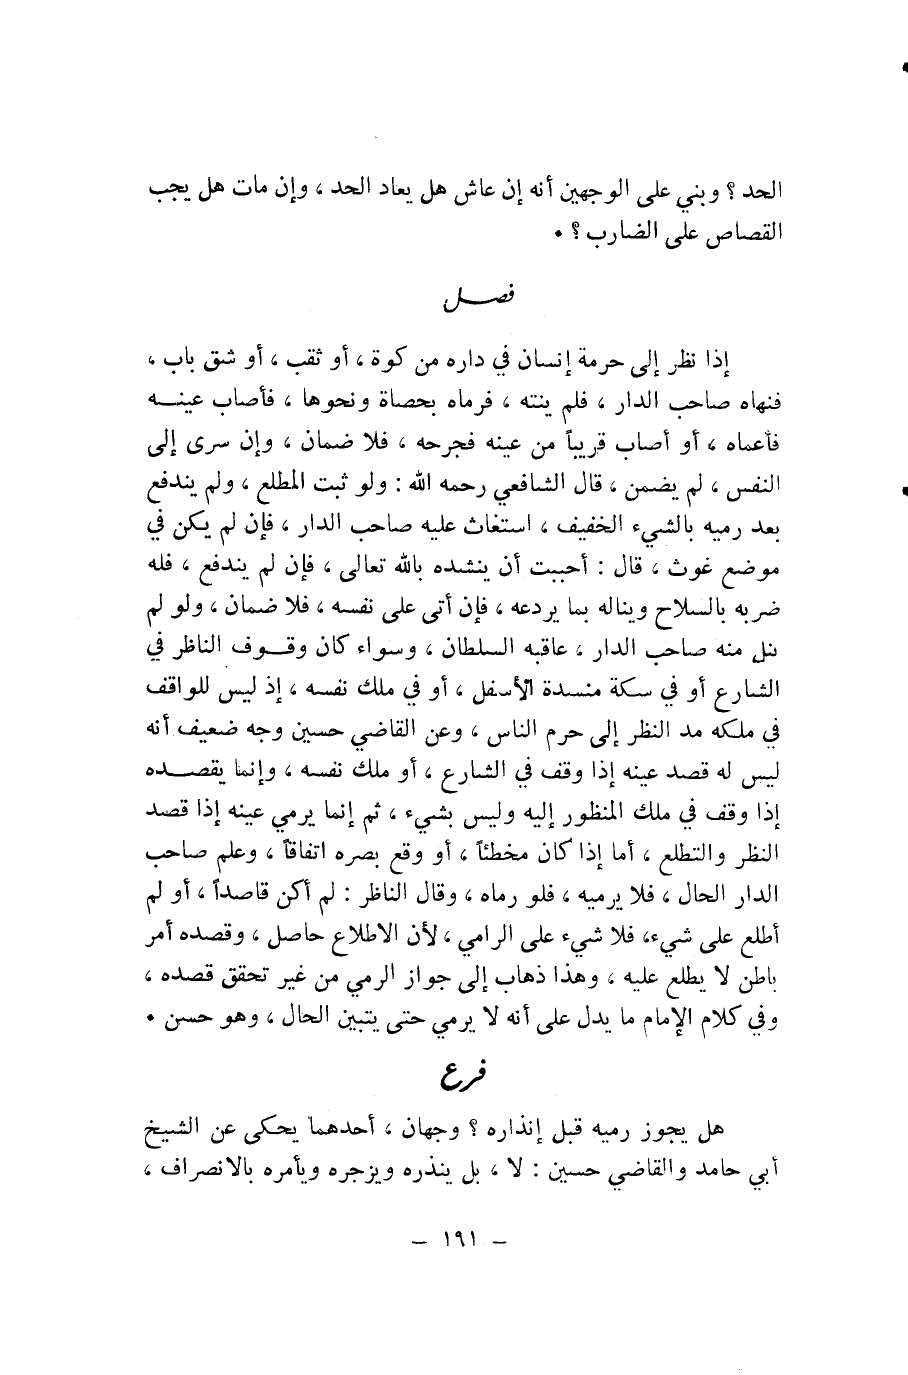 الحد ؟ وبني على الوجهين أنه إن عاش هل يعاد الحد ، وإن مات هل يجب
القصاص على الضارب ؟ •
فصــل
إذا نظر إلى حرمة إنسان في داره من كوة ، أو ثقب ، أو شق باب ،
فنهاه صاحب الدار ، فلم ينته ، فرماه بحصاة ونحوها ، فأصاب عينــه
فأعماه ، أو أصاب قريباً من عينه فجرحه ، فلا ضمان ، وإن سرى إلى
النفس ، لم يضمن ، قال الشافعي رحمه الله : ولو ثبت المطلع ، ولم يندفع
بعد رميه بالشيء الخفيف ، استغاث عليه صاحب الدار ، فإن لم يكن في
موضع غوث ، قال : أحببت أن ينشده بالله تعالى ، فإن لم يندفع ، فله
ضربه بالسلاح ويناله بما يردعه ، فإن أتى على نفسه ، فلا ضمان ، ولو لم
ينل منه صاحب الدار ، عاقبه السلطان ، وسواء كان وقــوف الناظر في
الشارع أو في سكة منسدة الأسفل ، أو في ملك نفسه ، إذ ليس للواقف
في ملكه مد النظر إلى حرم الناس ، وعن القاضي حسين وجه ضعيف أنه
ليس له قصد عينه إذا وقف في الشارع ، أو ملك نفسه ، وإنما يقصــده
إذا وقف في ملك المنظور إليه وليس بشيء ، ثم إنما يرمي عينه إذا قصد
النظر والتطلع ، أما إذا كان مخطئاً ، أو وقع بصره اتفاقاً ، وعلم صاحب
الدار الحال ، فلا يرميه ، فلو رماه ، وقال الناظر : لم أكن قاصداً ، أو لم
أطلع على شيء، فلا شيء على الرامي ، لأن الاطلاع حاصل ، وقصده أمر
باطن لا يطلع عليه ، وهذا ذهاب إلى جواز الرمي من غير تحقق قصده ،
وفي كلام الإمام ما يدل على أنه لا يرمي حتى يتبين الحال ، وهو حسن •
فرع
هل يجوز رميه قبل إنذاره ؟ وجهان ، أحدهما يحكى عن الشيخ
أبي حامد والقاضي حسين : لا ، بل ينذره ويزجره ويأمره بالانصراف ،
— ١٩١ —